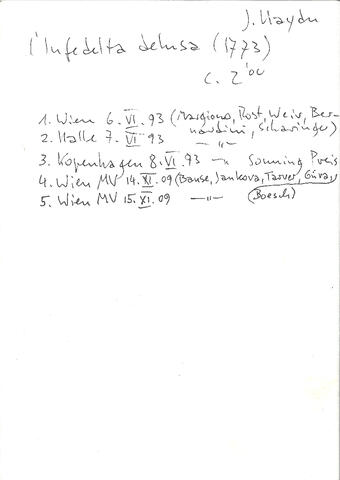 J. Haydn
l'Infedelta delusa (1773)
c. 2'00
1. Wien 6. VI. 93 (Margiono, Post, Weir, Ber-
nardini, Scharinger)
2. Halle 7. VI. 93 —"—
3. Kopenhagen 8. VI. 93 —"— Sonning Preis
4. Wien MV 14. XI. 09 (Banse, Jankova, Tarver, Güra,
5. Wien MV 15. XI. 09 —"— Boesch)